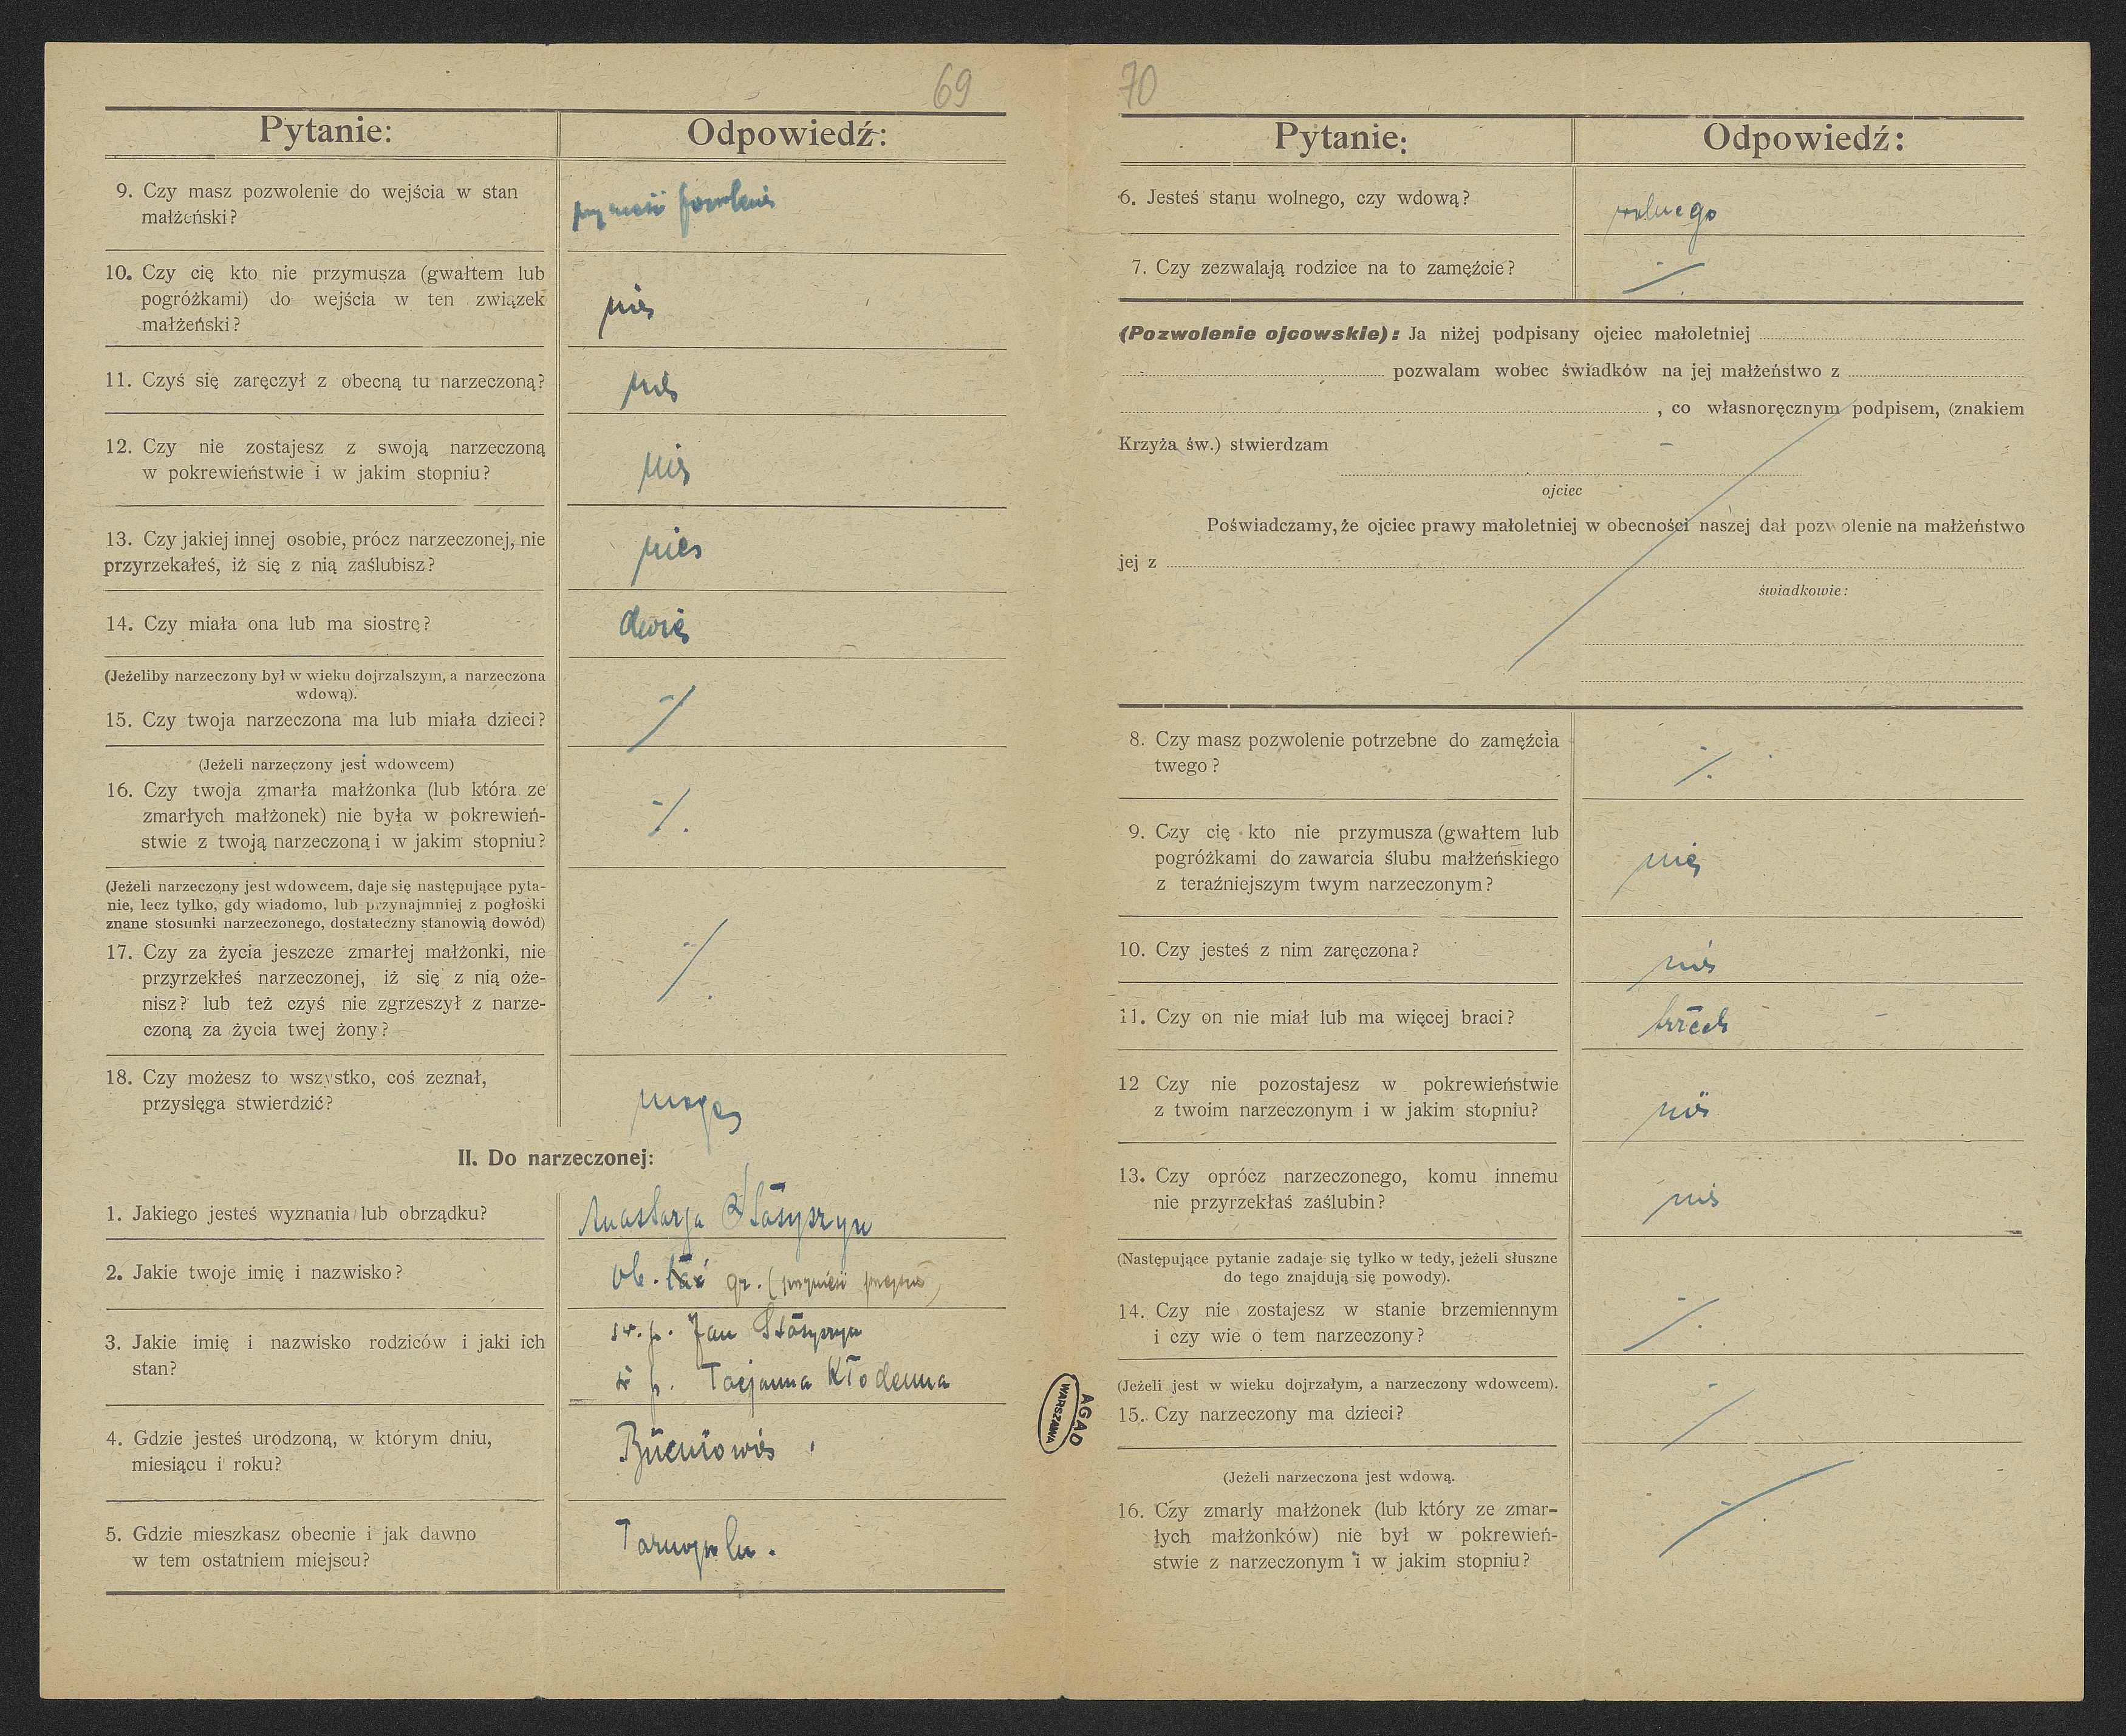 69
Pytanie: Odpowiedź:
9. Czy masz pozwolenie do wejścia w stan
małżeński?
10. Czy cię kto nie przymusza (gwałtem lub
pogróżkami) do wejścia w ten związek
małżeński?
nie
11. Czyś się zaręczył z obecną tu narzeczoną?
nie
12. Czy nie zostajesz z swoją narzeczoną
w pokrewieństwie i w jakim stopniu?
nie
13. Czy jakiej innej osobie, prócz narzeczonej, nie
przyrzekałeś, iż się z nią zaślubisz?
nie
14. Czy miała ona lub ma siostrę?
dwie
(Jeżeliby narzeczony był w wieku dojrzalszym, a narzeczona
wdową).
15. Czy twoja narzeczona ma lub miała dzieci?
(Jeżeli narzeczony jest wdowcem)
16. Czy twoja zmarła małżonka (lub która ze
zmarłych małżonek) nie była w pokrewień-
stwie z twoją narzeczoną i w jakim stopniu?
(Jeżeli narzeczony jest wdowcem, daje się następujące pyta-
nie, lecz tylko, gdy wiadomo, lub przynajmniej z pogłoski
znane stosunki narzeczonego, dostateczny stanowią dowód)
17. Czy za życia jeszcze zmarłej małżonki, nie
przyrzekłeś narzeczonej, iż się z nią oże-
nisz? lub też czyś nie zgrzeszył z narze-
czoną za życia twej żony?
18. Czy możesz to wszystko, coś zeznał,
przysięga stwierdzić?
mogę
II. Do narzeczonej:
1. Jakiego jesteś wyznania lub obrządku?
Anastazja
2. Jakie twoje imię i nazwisko?
ob. łać gr.
3. Jakie imię i nazwisko rodziców i jaki ich
stan?
św. p. Jan
św p. Tacjanna Kłodnna
4. Gdzie jesteś urodzoną, w którym dniu,
miesiącu i roku?
Bucniowie
5. Gdzie mieszkasz obecnie i jak dawno
w tem ostatniem miejscu?
Tarnopolu.
AGAD
WARSZAWA
70
Pytanie: Odpowiedź:
6. Jesteś stanu wolnego, czy wdową?
wolnego
7. Czy zezwalają rodzice na to zamęźcie?
(Pozwolenie ojcowskie): Ja niżej podpisany ojciec małoletniej
pozwalam wobec świadków na jej małżeństwo z
, co własnoręcznym podpisem, (znakiem
Krzyża św.) stwierdzam
ojciec
Poświadczamy, że ojciec prawy małoletniej w obecności naszej dał pozwolenie na małżeństwo
jej z
świadkowie:
8. Czy masz pozwolenie potrzebne do zamęźcia
twego?
9. Czy cię kto nie przymusza (gwałtem lub
pogróżkami do zawarcia ślubu małżeńskiego
z teraźniejszym twym narzeczonym?
nie
10. Czy jesteś z nim zaręczona?
nie
11. Czy on nie miał lub ma więcej braci?
trzech
12 Czy nie pozostajesz w pokrewieństwie
z twoim narzeczonym i w jakim stopniu?
nie
13. Czy oprócz narzeczonego, komu innemu
nie przyrzekłaś zaślubin?
nie
(Następujące pytanie zadaje się tylko w tedy, jeżeli słuszne
do tego znajdują się powody).
14. Czy nie zostajesz w stanie brzemiennym
i czy wie o tem narzeczony?
(Jeżeli jest w wieku dojrzałym, a narzeczony wdowcem).
15. Czy narzeczony ma dzieci?
(Jeżeli narzeczona jest wdową.
16. Czy zmarły małżonek (lub który ze zmar-
łych małżonków) nie był w pokrewień-
stwie z narzeczonym i w jakim stopniu?